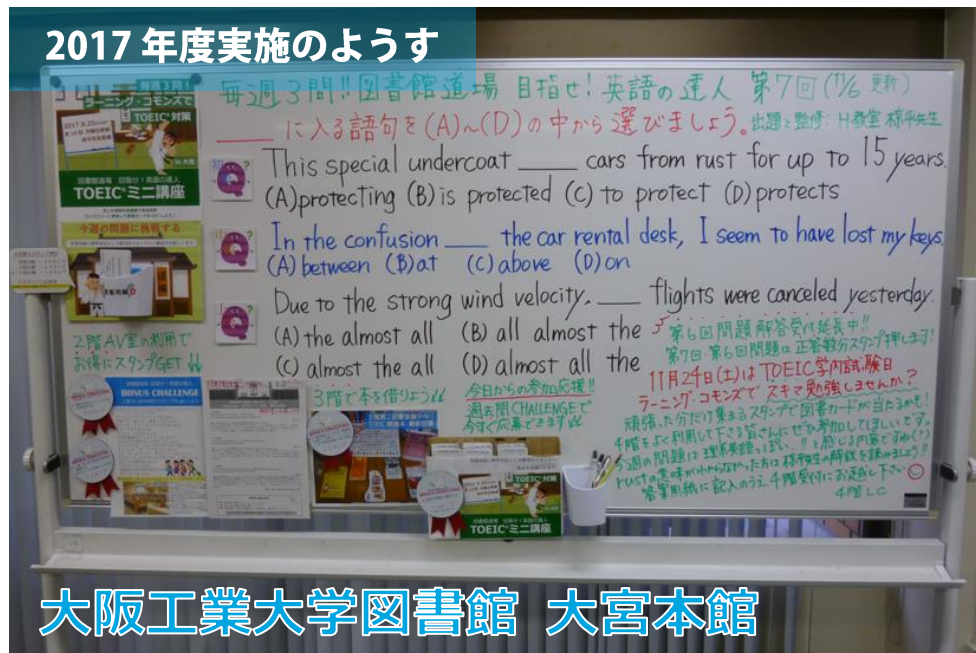 2017年度実施のようす
毎週3問!!図書館道場 目指せ!英語の達人 第7回(11/6 更新)
____に入る語句を(A)~(D)の中から選びましょう。
出題と監修: H教室 椋平先生
This special undercoat ____ cars from rust for up to 15 years.
(A)protecting (B)is protected (C)to protect (D)protects
In the confusion ____ the car rental desk, I seem to have lost my keys.
(A)between (B)at (C)above (D)on
Due to the strong wind velocity, ____ flights were canceled yesterday.
(A)the almost all (B)all almost the
(C)almost the all (D)almost all the
ラーニング・コモンズで
TOEIC®対策
図書館道場 目指せ!英語の達人
TOEIC®ミニ講座
今週の問題に挑戦する
2階AV室の利用で
お得にスタンプGET
BONUS CHALLENGE
3階で本を借りよう
今日からの参加応援!!
過去問CHALLENGEで
今すぐ応募できます
第6回問題解答受付延長中!!
第7回・第6回問題は正答数分スタンプ押します!
11月24日(土)はTOEIC学内試験日
ラーニング・コモンズでスキマ勉強しませんか?
頑張った分だけ集まるスタンプで図書カードが当たるかも!
4階をよく利用して下さる皆さんにぜひ参加してほしいです。
今週の問題は理系英語っぽい!!と感じる内容ですね(!?)
rustの意味がわからなかった方は椋平先生の解説を読みましょう!!
答案用紙に記入のうえ4階受付にお越し下さい
4階LC
TOEIC®対策
図書館道場 目指せ!英語の達人
TOEIC®ミニ講座
大阪工業大学図書館 大宮本館